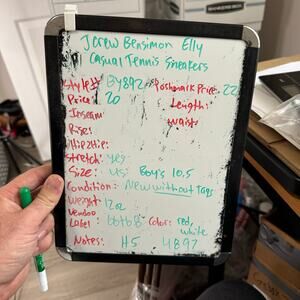 J Crew Bensimon Elly
Casual Tennis Sneakers
Style#: BY892 Poshmark Price: 22
Price: 20 Length:
Inseam: Waist:
Rise:
Hip2Hip:
Stretch: yes
Size: US: Boy's 10.5
Condition: New without Tags
Weight: 12oz
Vendoo
Label: Color: red,
white
Notes: H5 4897